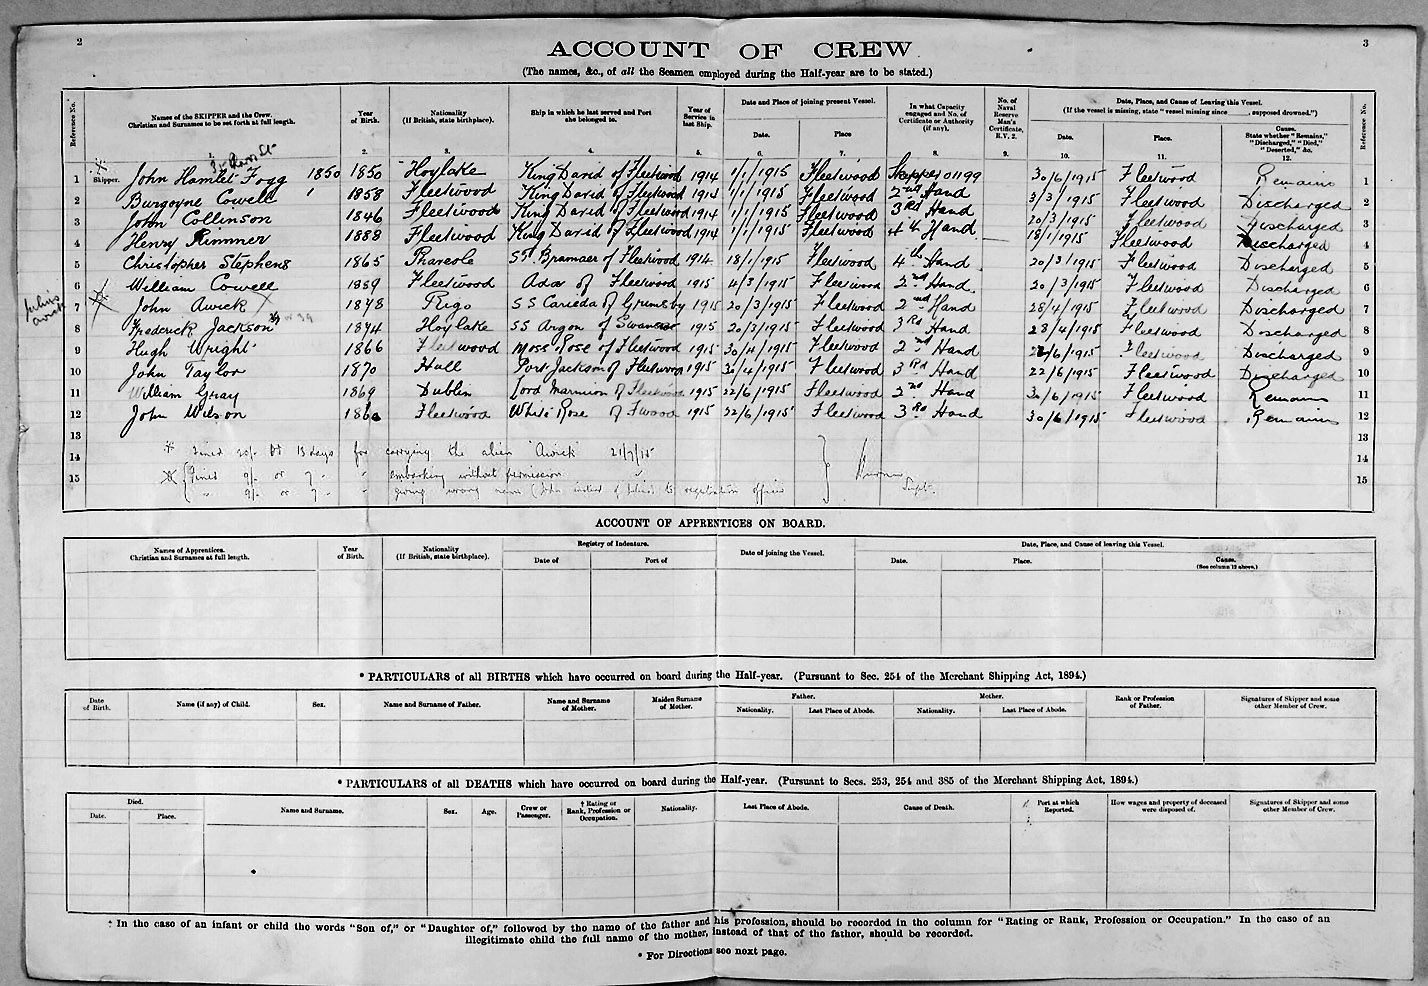 2
3
ACCOUNT OF CREW.
(The names, &c., of all the Seamen employed during the Half-year are to be stated.)
Reference No.
Names of the SKIPPER and the Crew. Christian and Surnames to be set forth at full length.
Year of Birth. 2.
Nationality (If British, state birthplace). 3.
Ship in which he last served and Port she belonged to. 4.
Year of Service in last Ship. 5.
Date and Place of joining present Vessel.
Date. 6.
Place 7.
In what Capacity engaged and No. of Certificate or Authority (if any). 8.
No. of Naval Reserve Man's Certificate, R.V. 2. 9.
Date, Place, and Cause of Leaving this Vessel.
(If the vessel is missing, state "vessel missing since ____, supposed drowned.")
Date. 10.
Place. 11.
Cause. State whether "Remains," "Discharged," "Died," "Deserted," &c. 12.
Reference No.
1 Skipper. John Hamlet Fogg 1850 1850 Hoylake King David of Fleetwood 1914 1/1/1915 Fleetwood Skipper 01199 30/6/1915 Fleetwood Remains 1
2 Burgoyne Cowell 1858 Fleetwood King David of Fleetwood 1914 1/1/1915 Fleetwood 2nd Hand 3/3/1915 Fleetwood Discharged 2
3 John Collinson 1846 Fleetwood King David of Fleetwood 1914 1/1/1915 Fleetwood 3rd Hand 20/3/1915 Fleetwood Discharged 3
4 Henry Rimmer 1888 Fleetwood King David of Fleetwood 1914 1/1/1915 Fleetwood 4th Hand 18/1/1915 Fleetwood Discharged 4
5 Christopher Stephens 1865 SS of Fleetwood 1914 18/1/1915 Fleetwood 4th Hand 20/3/1915 Fleetwood Discharged 5
6 William Cowell 1859 Fleetwood Ada of Fleetwood 1915 4/3/1915 Fleetwood 2nd Hand 20/3/1915 Fleetwood Discharged 6
Julius Awick
7 John Awick 1878 Riga SS of Grimsby 1915 20/3/1915 Fleetwood 2nd Hand 28/4/1915 Fleetwood Discharged 7
8 Frederick Jackson 1874 Hoylake SS Argon of Swansea 1915 20/3/1915 Fleetwood 3rd Hand 28/4/1915 Fleetwood Discharged 8
9 Hugh Wright 1866 Fleetwood Moss Rose of Fleetwood 1915 30/4/1915 Fleetwood 2nd Hand /6/1915 Fleetwood Discharged 9
10 John Taylor 1870 Hull Port Jackson of Fleetwood 1915 30/4/1915 Fleetwood 3rd Hand 22/6/1915 Fleetwood Discharged 10
11 William Gray 1869 Dublin Lord Marmion of Fleetwood 1915 22/6/1915 Fleetwood 2nd Hand 30/6/1915 Fleetwood Remains 11
12 John Wilson Fleetwood White Rose of Fwood 1915 22/6/1915 Fleetwood 3rd Hand 30/6/1915 Fleetwood Remains 12
13 13
Fined 20/- or 13 days for carrying the alien 'Awick' 21/7/15
14 14
Fined 9/- or 7 " " embarking without permission "
15 15
" 9/- or 7 " " giving wrong name (John instead of Julius) to registration officer
Supt.
ACCOUNT OF APPRENTICES ON BOARD.
Names of Apprentices. Christian and Surnames at full length.
Year of Birth.
Nationality (If British, state birthplace).
Registry of Indenture.
Date of
Port of
Date of joining the Vessel.
Date, Place, and Cause of leaving this Vessel.
Date.
Place.
Cause. (See column 12 above.)
* PARTICULARS of all BIRTHS which have occurred on board during the Half-year. (Pursuant to Sec. 254 of the Merchant Shipping Act, 1894.)
Date of Birth.
Name (if any) of Child.
Sex.
Name and Surname of Father.
Name and Surname of Mother.
Maiden Surname of Mother.
Father.
Nationality.
Last Place of Abode.
Mother.
Nationality.
Last Place of Abode.
Rank or Profession of Father.
Signatures of Skipper and some other Member of Crew.
* PARTICULARS of all DEATHS which have occurred on board during the Half-year. (Pursuant to Secs. 253, 254 and 385 of the Merchant Shipping Act, 1894.)
Died.
Date.
Place.
Name and Surname.
Sex.
Age.
Crew or Passenger.
† Rating or Rank, Profession or Occupation.
Nationality.
Last Place of Abode.
Cause of Death.
Port at which Reported.
How wages and property of deceased were disposed of.
Signatures of Skipper and some other Member of Crew.
† In the case of an infant or child the words "Son of," or "Daughter of," followed by the name of the father and his profession, should be recorded in the column for "Rating or Rank, Profession or Occupation." In the case of an
illegitimate child the full name of the mother, instead of that of the father, should be recorded.
* For Directions see next page.